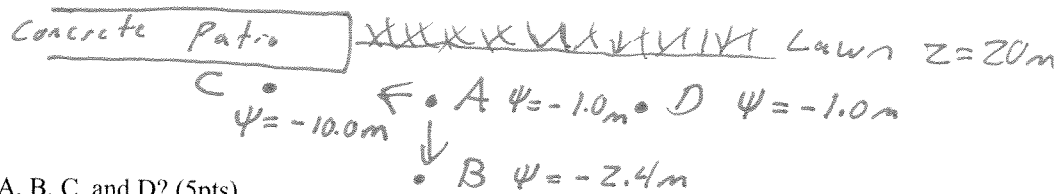 Concrete Patio Lawn z=20m
C A ψ=-1.0m D ψ=-1.0m
ψ=-10.0m
B ψ=-2.4m
A, B, C, and D? (5pts)